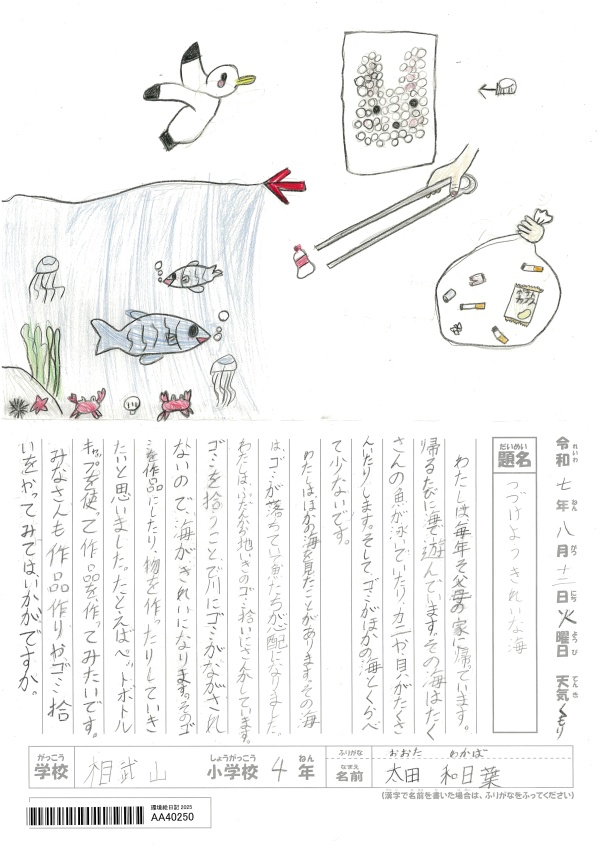 令和七年八月十二日火曜日 天気くもり
れいわ ねん がつ にち ようび てんき
だいめい
題名
つづけようきれいな海
わたしは毎年そ父母の家に帰っています。
帰るたびに海で遊んでいます。その海はたく
さんの魚が泳いでいたり、カニや貝がたくさ
んいたりします。そして、ゴミがほかの海とくらべ
て少ないです。
わたしはほかの海を見たことがあります。その海
は、ゴミが落ちていて魚たちが心配になりました。
わたしは、ふだんから地いきのゴミ拾いにさんかしています。
ゴミを拾うことで川にゴミがながされ
ないので、海がきれいになります。そのゴ
ミを作品にしたり、物を作ったりしていき
たいと思いました。たとえばペットボトル
キャップを使って作品を作ってみたいです。
みなさんも作品作りやゴミ拾
いをやってみてはいかがですか。
がっこう しょうがっこう ねん
学校 相武山 小学校 4年
ふりがな おおた わかば
なまえ
名前 太田 和日葉
(漢字で名前を書いた場合は、ふりがなをふってください)
環境絵日記 2025
AA40250